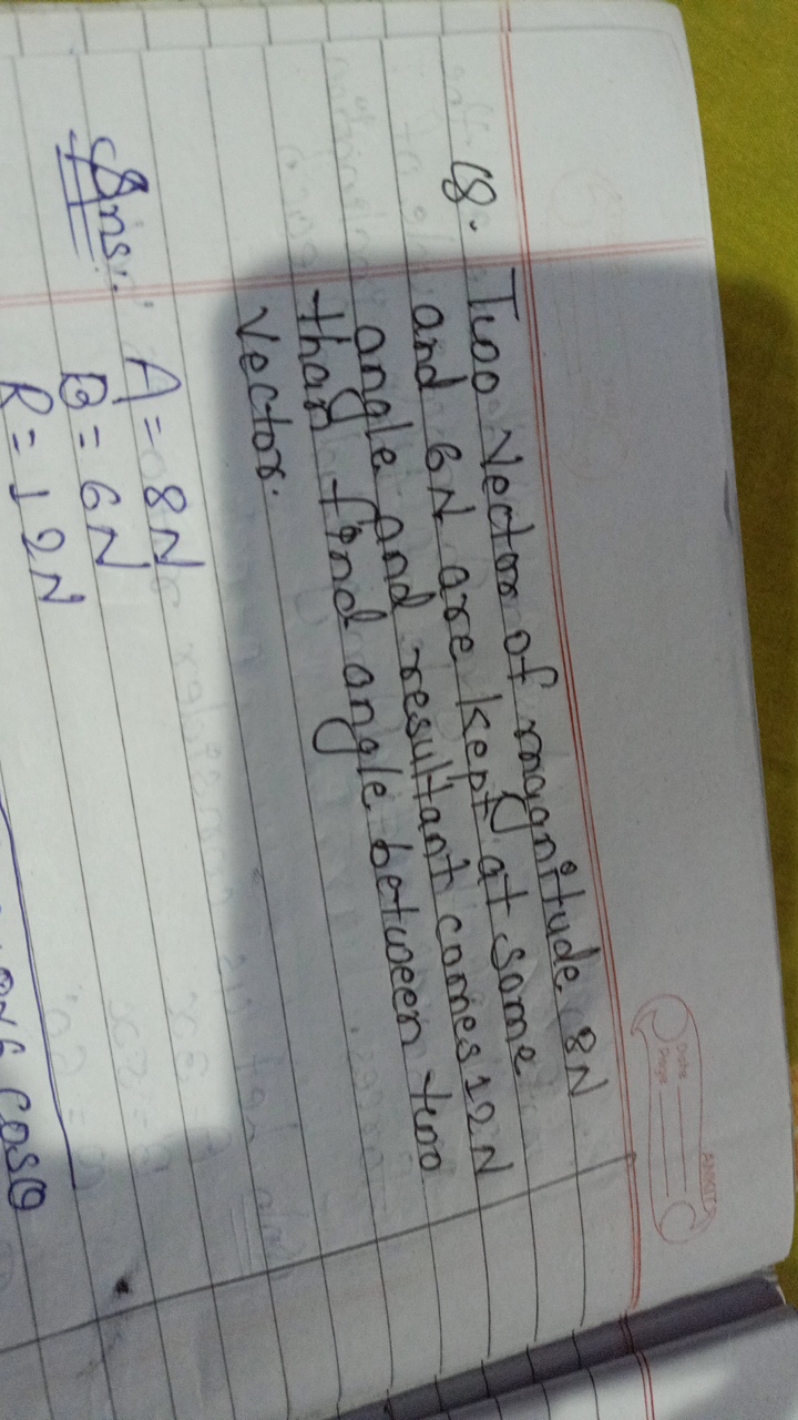 ANKIT
Date
Page
18. Two Vector of magnitude 8N
and 6N are kept at some
angle and resultant comes 12N
than find angle between two
Vector.
Ans:- A = 8N
B = 6N
R = 12N
cosθ